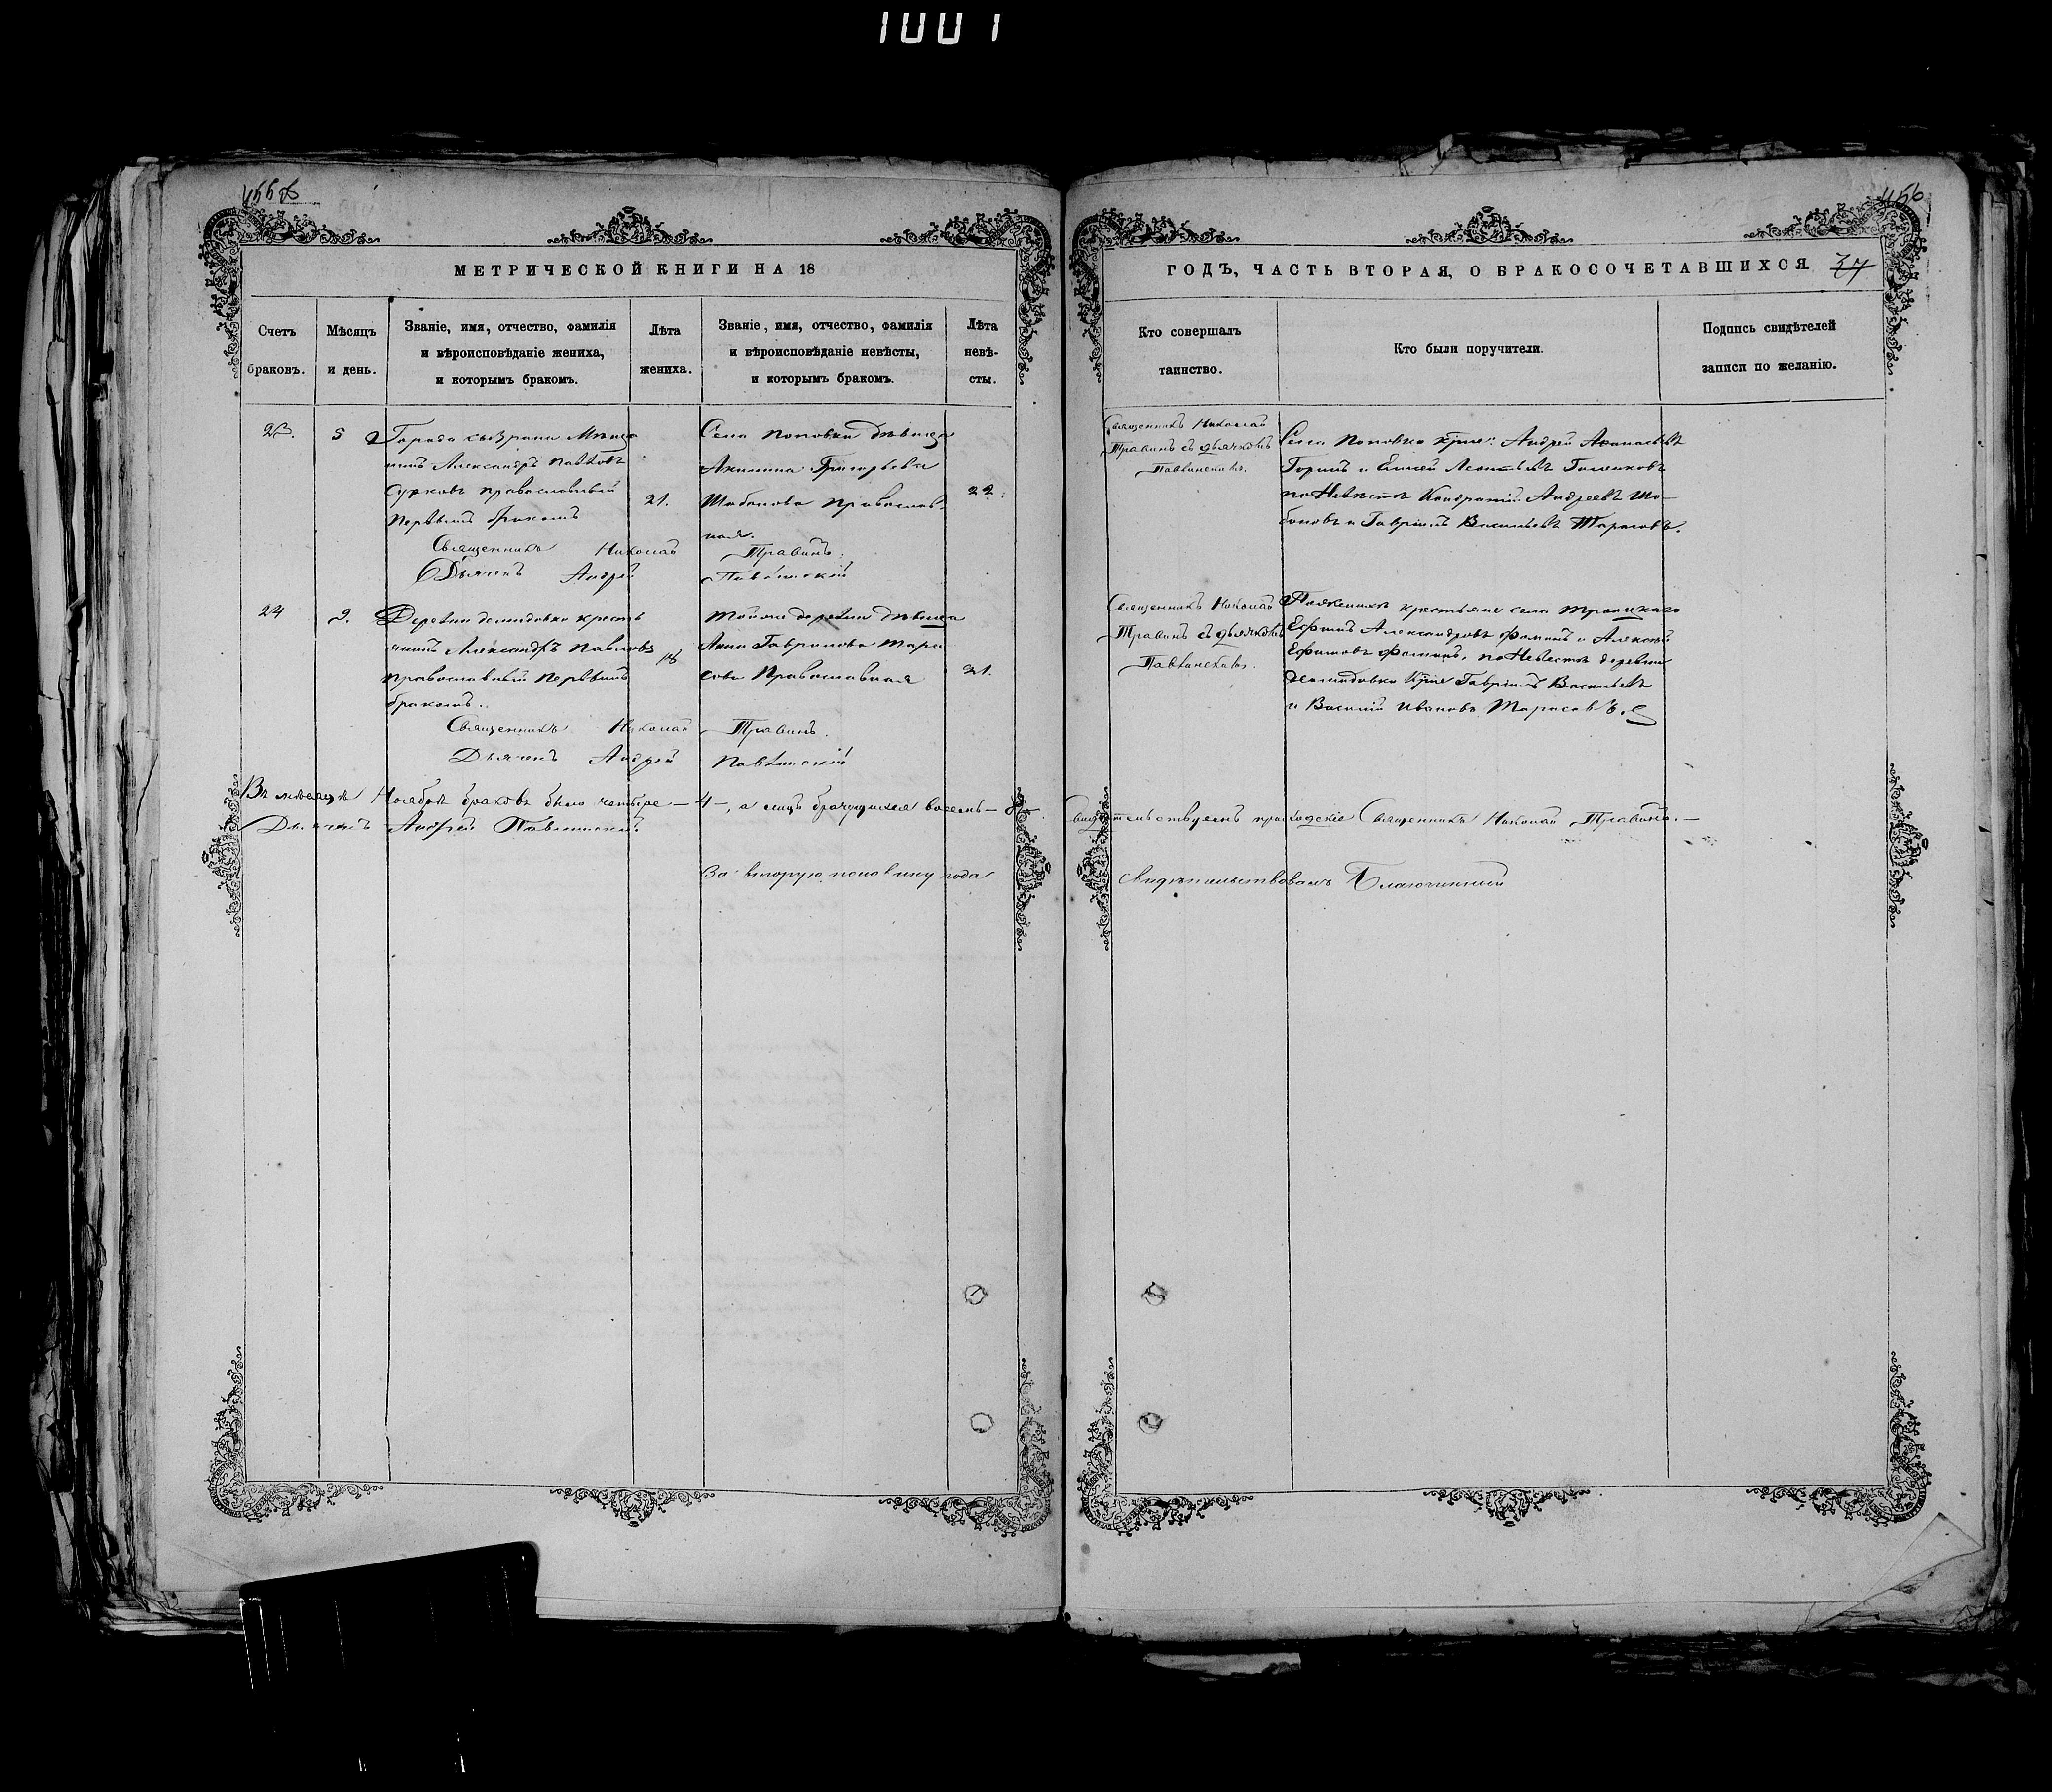 1001
455об
456
МЕТРИЧЕСКОЙ КНИГИ НА 18
ГОДЪ, ЧАСТЬ ВТОРАЯ, О БРАКОСОЧЕТАВШИХСЯ.
37
Счетъ
браковъ.
Мѣсяцъ
и день.
Званіе, имя, отчество, фамилія
и вѣроисповѣданіе жениха,
и которымъ бракомъ.
Лѣта
жениха.
Званіе, имя, отчество, фамилія
и вѣроисповѣданіе невѣсты,
и которымъ бракомъ.
Лѣта
невѣ-
сты.
Кто совершалъ
таинство.
Кто были поручители.
Подпись свидѣтелей
записи по желанію.
23.
5
Города Сызрани Мѣща
нинъ Александръ Павловъ
Сурковъ православный
первымъ бракомъ
21.
Села Поповки дѣвица
Акилина Григорьева
Шабанова Православ-
ная.
22.
Священникъ Николай Травинъ.
Дьячекъ Андрей Павлинскій
Священникъ Николай
Травинъ съ дьячкомъ
Павлинскимъ.
Села Поповки крие: Андрей Аѳанасьевъ
Горинъ и Елисей Леонтьевъ Голенковъ
по Невѣстѣ Кондратій Андреевъ Ша-
бановъ и Гавріилъ Васильевъ Тарасовъ.
24
9.
Деревни Демидовки крестья
нинъ Александръ Павловъ
православный первымъ
бракомъ.
18
Тойже деревни дѣвица
Анна Гаврилова Тара
сова Православная
21.
Священникъ Николай Травинъ.
Дьячекъ Андрей Павлинскій
Священникъ Николай
Травинъ съ дьячкомъ
Павлинскимъ.
По женихѣ крестьяне села Троицкаго
Ефимъ Александровъ Фоминъ и Алексѣй
Ефимовъ Фоминъ, по Невѣстѣ деревни
Демидовки крие Гавріилъ Васильевъ
и Василій Ивановъ Тарасовъ.
Въ мѣсяцѣ Ноябрѣ браковъ было четыре – 4 –, а лицъ брачущихся восемь – 8.
Дьячекъ Андрей Павлинскій.
Свидѣтельствуемъ приходскіе Священникъ Николай Травинъ. –
За вторую половину года
свидѣтельствовалъ Благочинный